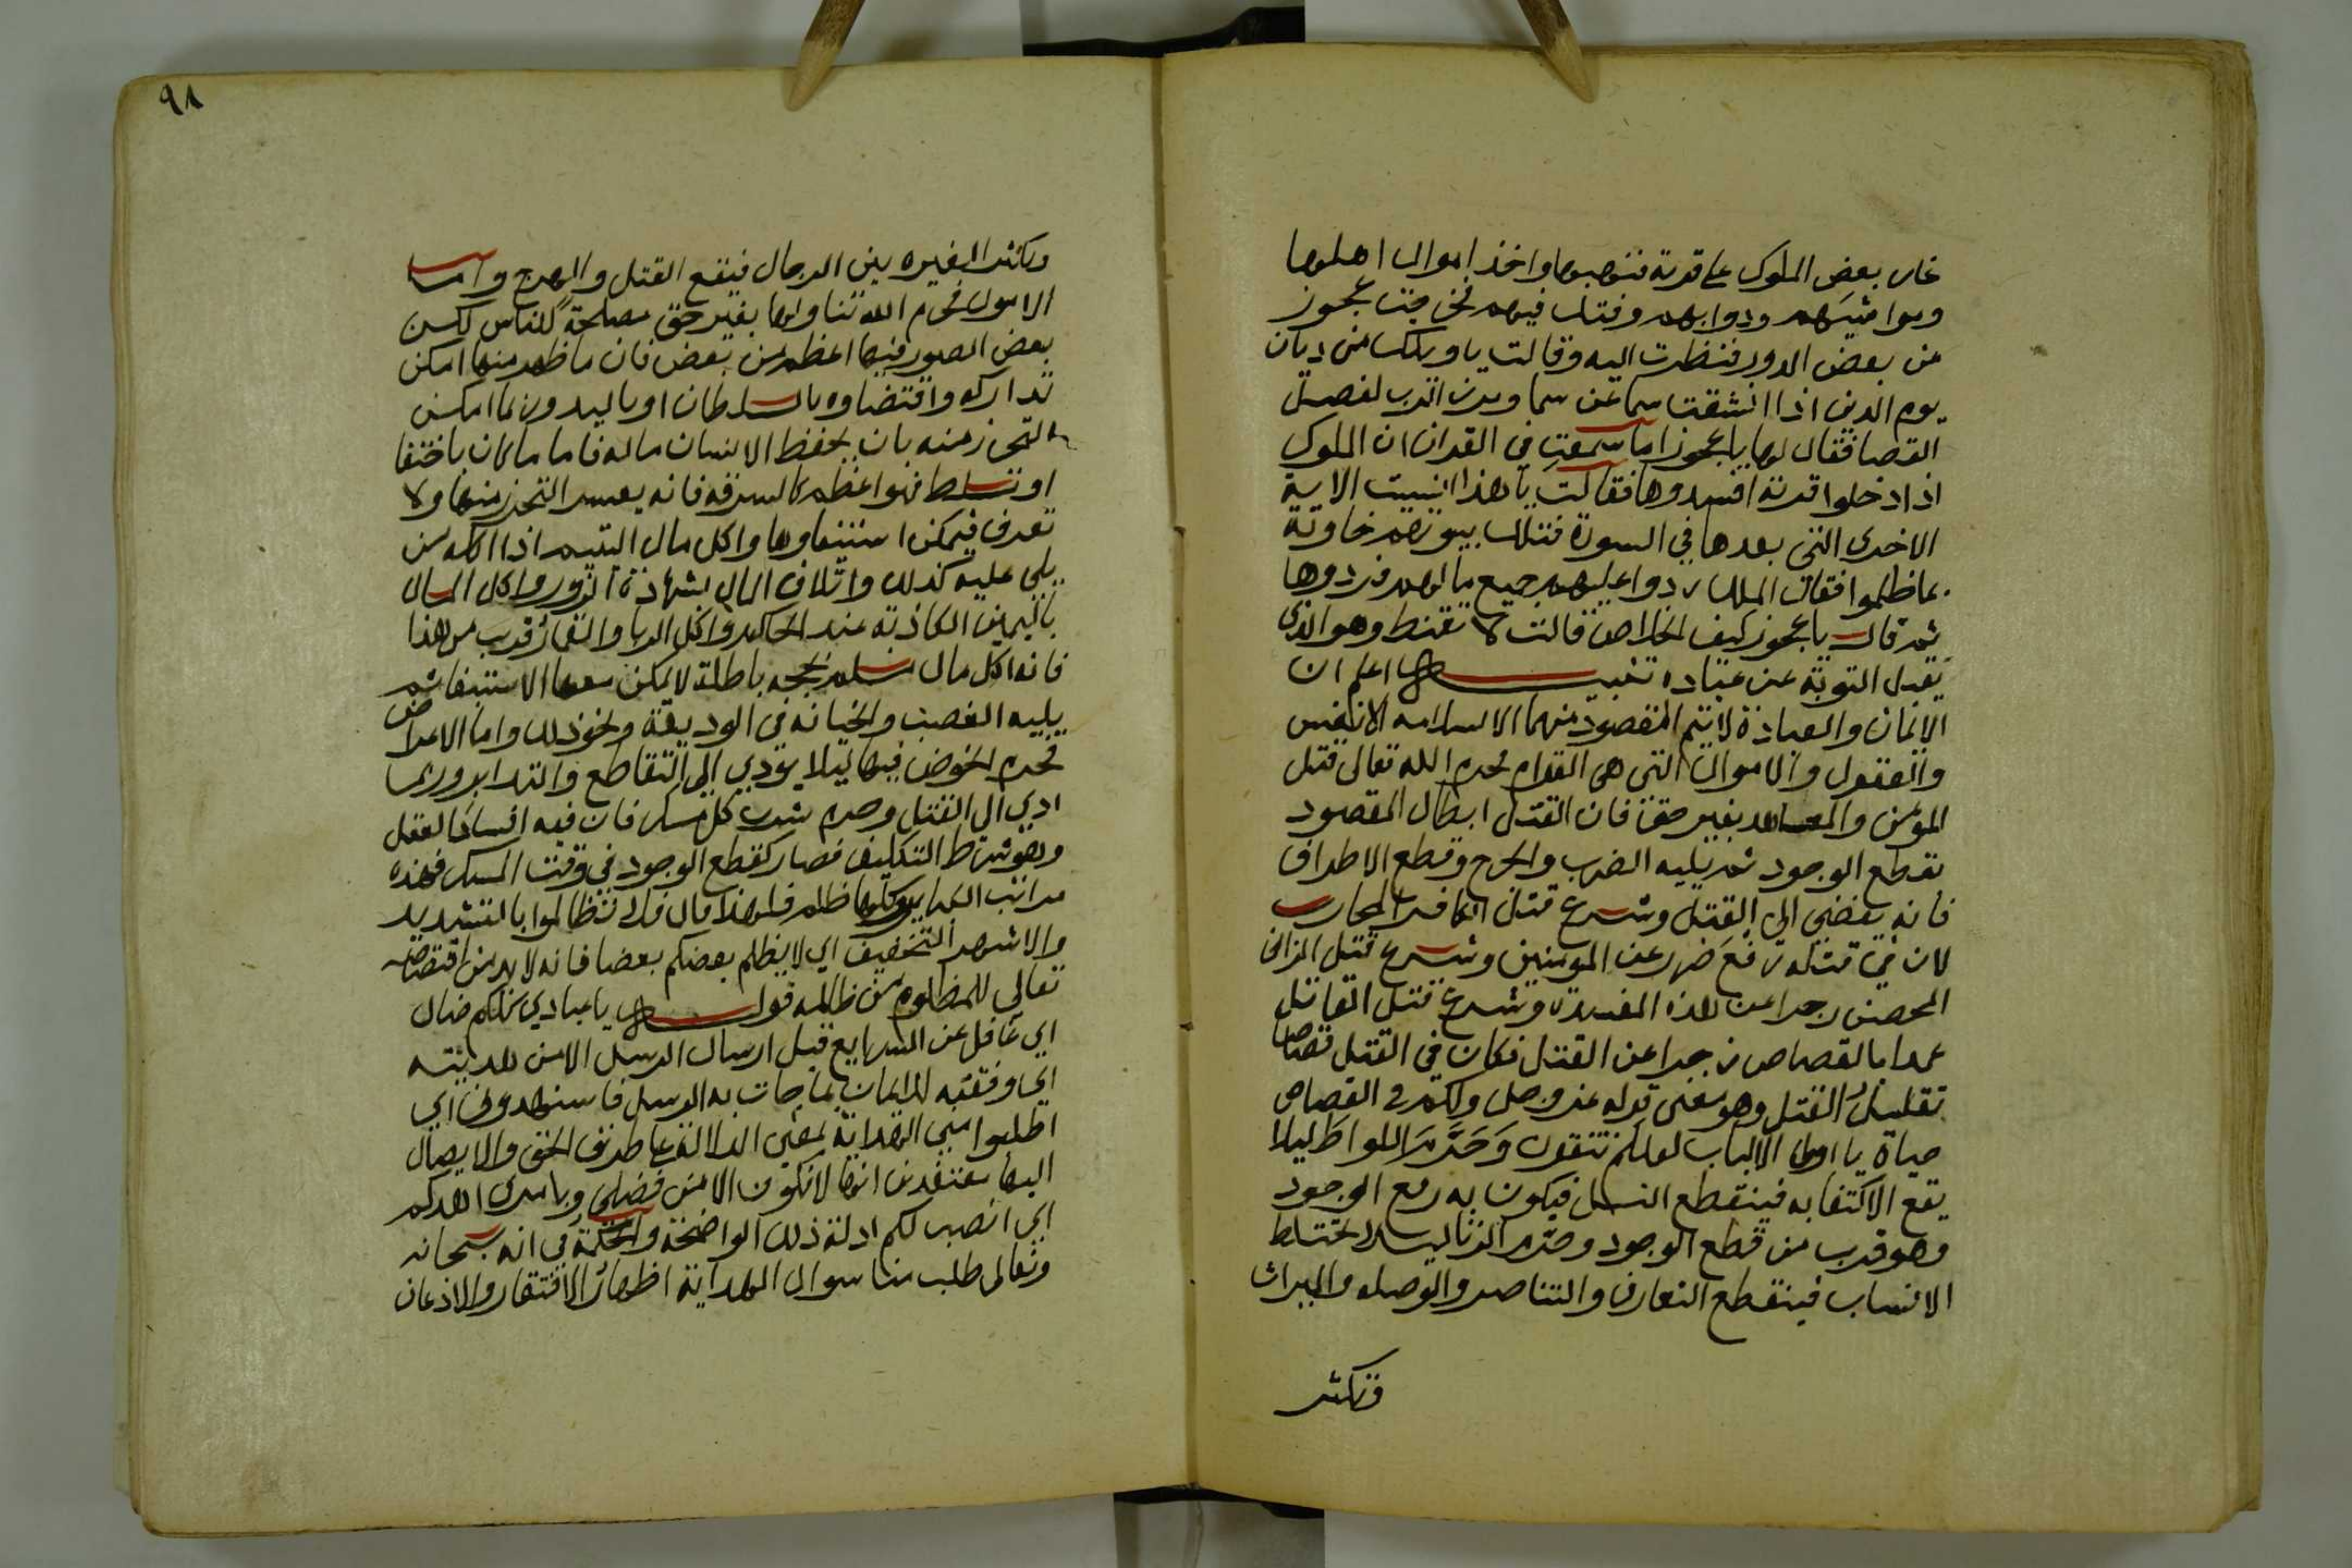 غار بعض الملوك على قرية فنهبها واخذ اموال اهلها
ومواشيهم ودوابهم وقتل فيهم فخرجت عجوز
من بعض الدور فنظرت اليه وقالت يا ويلك من ديان
يوم الدين اذا انشقت سما عن سما وبرز الرب لفصل
القضا فقال لها يا عجوز اما سمعت في القران ان الملوك
اذا دخلوا قرية افسدوها فقالت يا هذا انسيت الاية
الاخرى التي بعدها في السورة فتلك بيوتهم خاوية
بما ظلموا فقال الملك ردوا عليهم جميع مالهم فردوها
ثم قال يا عجوز كيف الخلاص قالت لا تقنط وهو الذي
يقبل التوبة عن عباده تنبيه اعلم ان
الايمان والعبادة لا يتم المقصود منهما الا بسلامة الانفس
والعقول والاموال التي هي القوام فحرم الله تعالى قتل
المؤمن والمعاهد بغير حق فان القتل ابطال المقصود
بقطع الوجود ثم يليه الضرب والجرح وقطع الاطراف
فانه يفضي الى القتل وشرع قتل الكافر المحارب
لان في قتله رفع ضرر عن المؤمنين وشرع قتل الزاني
المحصن زجرا عن هذه المفسدة وشرع قتل القاتل
عمدا بالقصاص زجرا عن القتل فكان في القتل قصاصا
تقليل القتل وهو معنى قوله عز وجل ولكم في القصاص
حياة يا اولي الالباب لعلكم تتقون وَحَرَّمَ اللواط ليلا
يقع الاكتفا به فينقطع النسل فيكون به رفع الوجود
وهو قريب من قطع الوجود وحرم الزنا ليلا تختلط
الانساب فينقطع التعارف والتناصر والوصله والميراث
وتكثر
٩٨
وتكثر الغيره بين الرجال فيقع القتل والهرج واما
الاموال فحرم الله تناولها بغير حق مصلحةً للناس لكن
بعض الصور فيها اعظم من بعض فان ما ظهر منها امكن
تداركه واقتضاوه بالسلطان او باليد وربما امكن
التحرز منه بان يحفظ الانسان ماله فاما ما كان باختفا
او تسلط فهو اعظم كالسرقه فانه يعسر التحرز منها ولا
تعرف فيمكن استيفاوها واكل مال اليتيم اذا اكله من
يلي عليه كذلك واتلاف المال بشهادة الزور واكل المال
باليمين الكاذبة عند الحاكم واكل الربا والقمار قريب من هذا
فانه اكل مال مسلم بحجه باطلة لا يمكن معها الاستيفا ثم
يليه الغصب والخيانه في الوديعة ونحو ذلك واما الاعراض
فحرم الخوض فيها ليلا يؤدي الى التقاطع والتدابر وربما
ادي الى القتل وحرم شرب كل مسكر فان فيه افساد العقل
وهو شرط التكليف فصار كقطع الوجود في وقت السكر فهذه
مراتب الكباير وكلها ظلم فلهذا قال فلا تظالموا بالتشديد
والاشهر التخفيف اي لا يظلم بعضكم بعضا فانه لا بد من اقتصاصه
تعالى للمظلوم من ظالمه قوله يا عبادي كلكم ضال
اي غافل عن الشرايع قبل ارسال الرسل الا من هديته
اي وفقته للايمان بما جات به الرسل فاستهدوني اي
اطلبوا مني الهداية بمعنى الدلالة على طريق الحق والايصال
اليها معتقدين انها لا تكون الا من فضلي وبامري اهدكم
اي انصب لكم ادلة ذلك الواضحة والحكمة في انه سبحانه
وتعالى طلب منا سوال الهداية اظهار الافتقار والاذعان